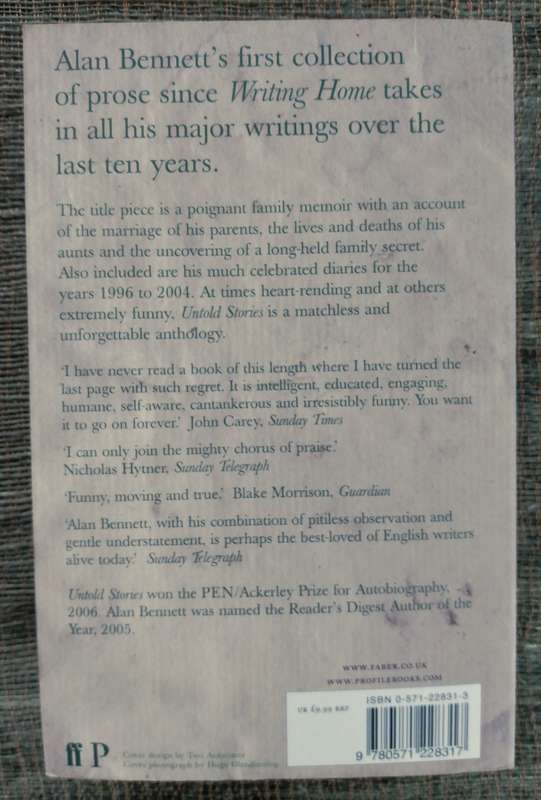 Alan Bennett's first collection
of prose since Writing Home takes
in all his major writings over the
last ten years.
The title piece is a poignant family memoir with an account
of the marriage of his parents, the lives and deaths of his
aunts and the uncovering of a long-held family secret.
Also included are his much celebrated diaries for the
years 1996 to 2004. At times heart-rending and at others
extremely funny, Untold Stories is a matchless and
unforgettable anthology.
'I have never read a book of this length where I have turned the
last page with such regret. It is intelligent, educated, engaging,
humane, self-aware, cantankerous and irresistibly funny. You want
it to go on forever.' John Carey, Sunday Times
'I can only join the mighty chorus of praise.'
Nicholas Hytner, Sunday Telegraph
'Funny, moving and true.' Blake Morrison, Guardian
'Alan Bennett, with his combination of pitiless observation and
gentle understatement, is perhaps the best-loved of English writers
alive today.' Sunday Telegraph
Untold Stories won the PEN/Ackerley Prize for Autobiography,
2006. Alan Bennett was named the Reader's Digest Author of the
Year, 2005.
WWW.FABER.CO.UK
WWW.PROFILEBOOKS.COM
UK £9.99 RRP
ISBN 0-571-22831-3
9 780571 228317
ff P
Cover design by Two Associates
Cover photograph by Hugo Glendinning